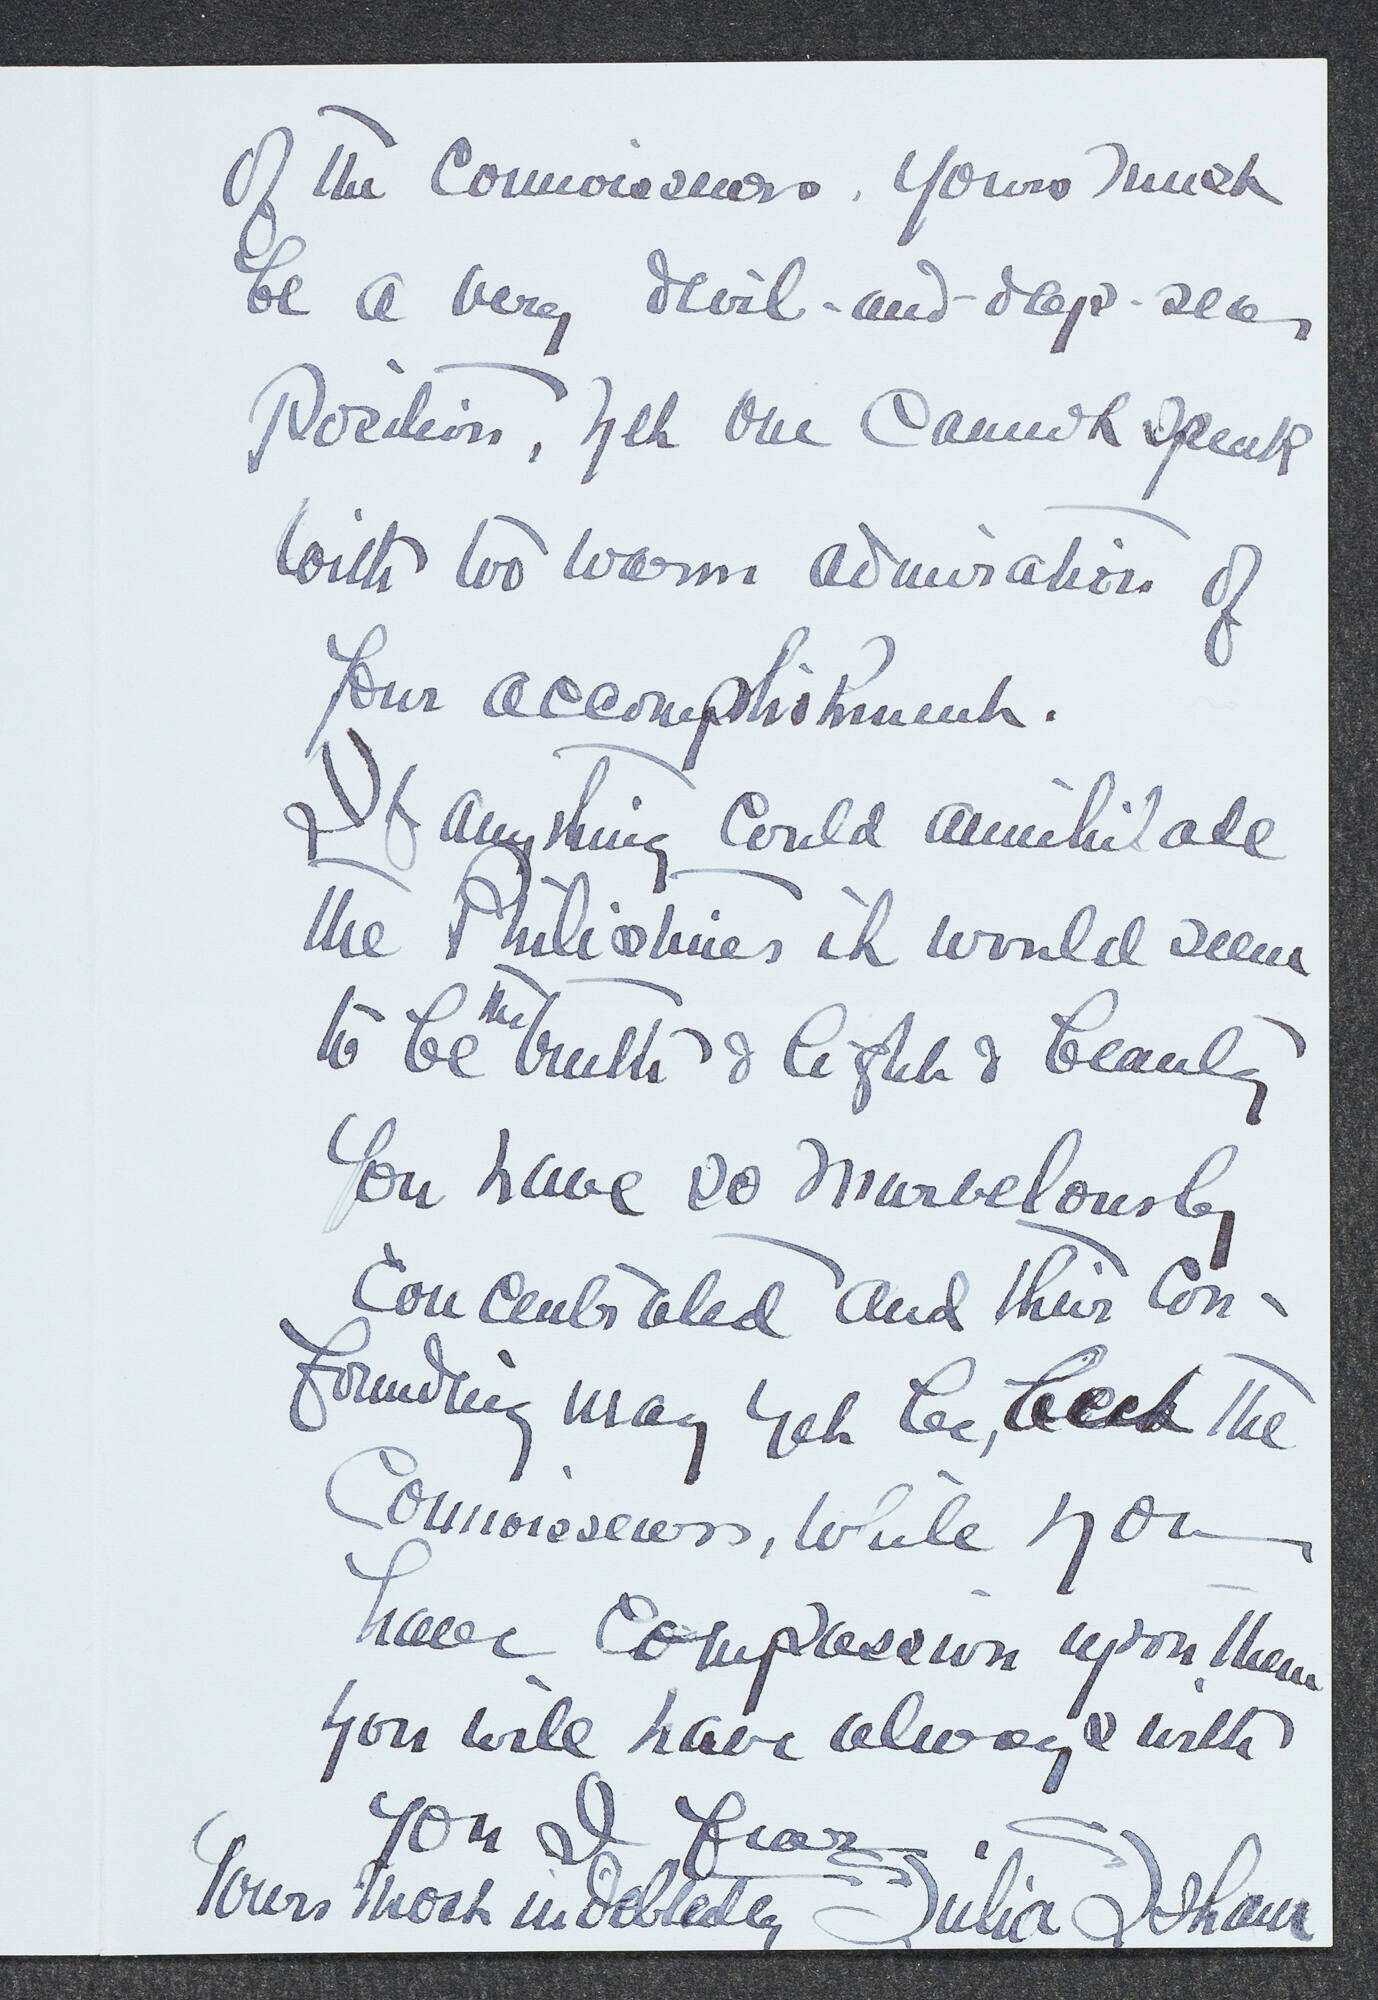 of the Connoisseurs. Yours must
be a very devil-and-deep-sea
Position, yet one cannot speak
with too warm admiration of
your accomplishment.
If anything could annihilate
the Philistines it would seem
to be the truth & light & beauty
you have so marvelously
concentrated and their con-
founding may yet be, but the
Connoisseurs, while you
have compassion upon them
you will have always with
you I fear.
Yours most indebtedly Julia Isham